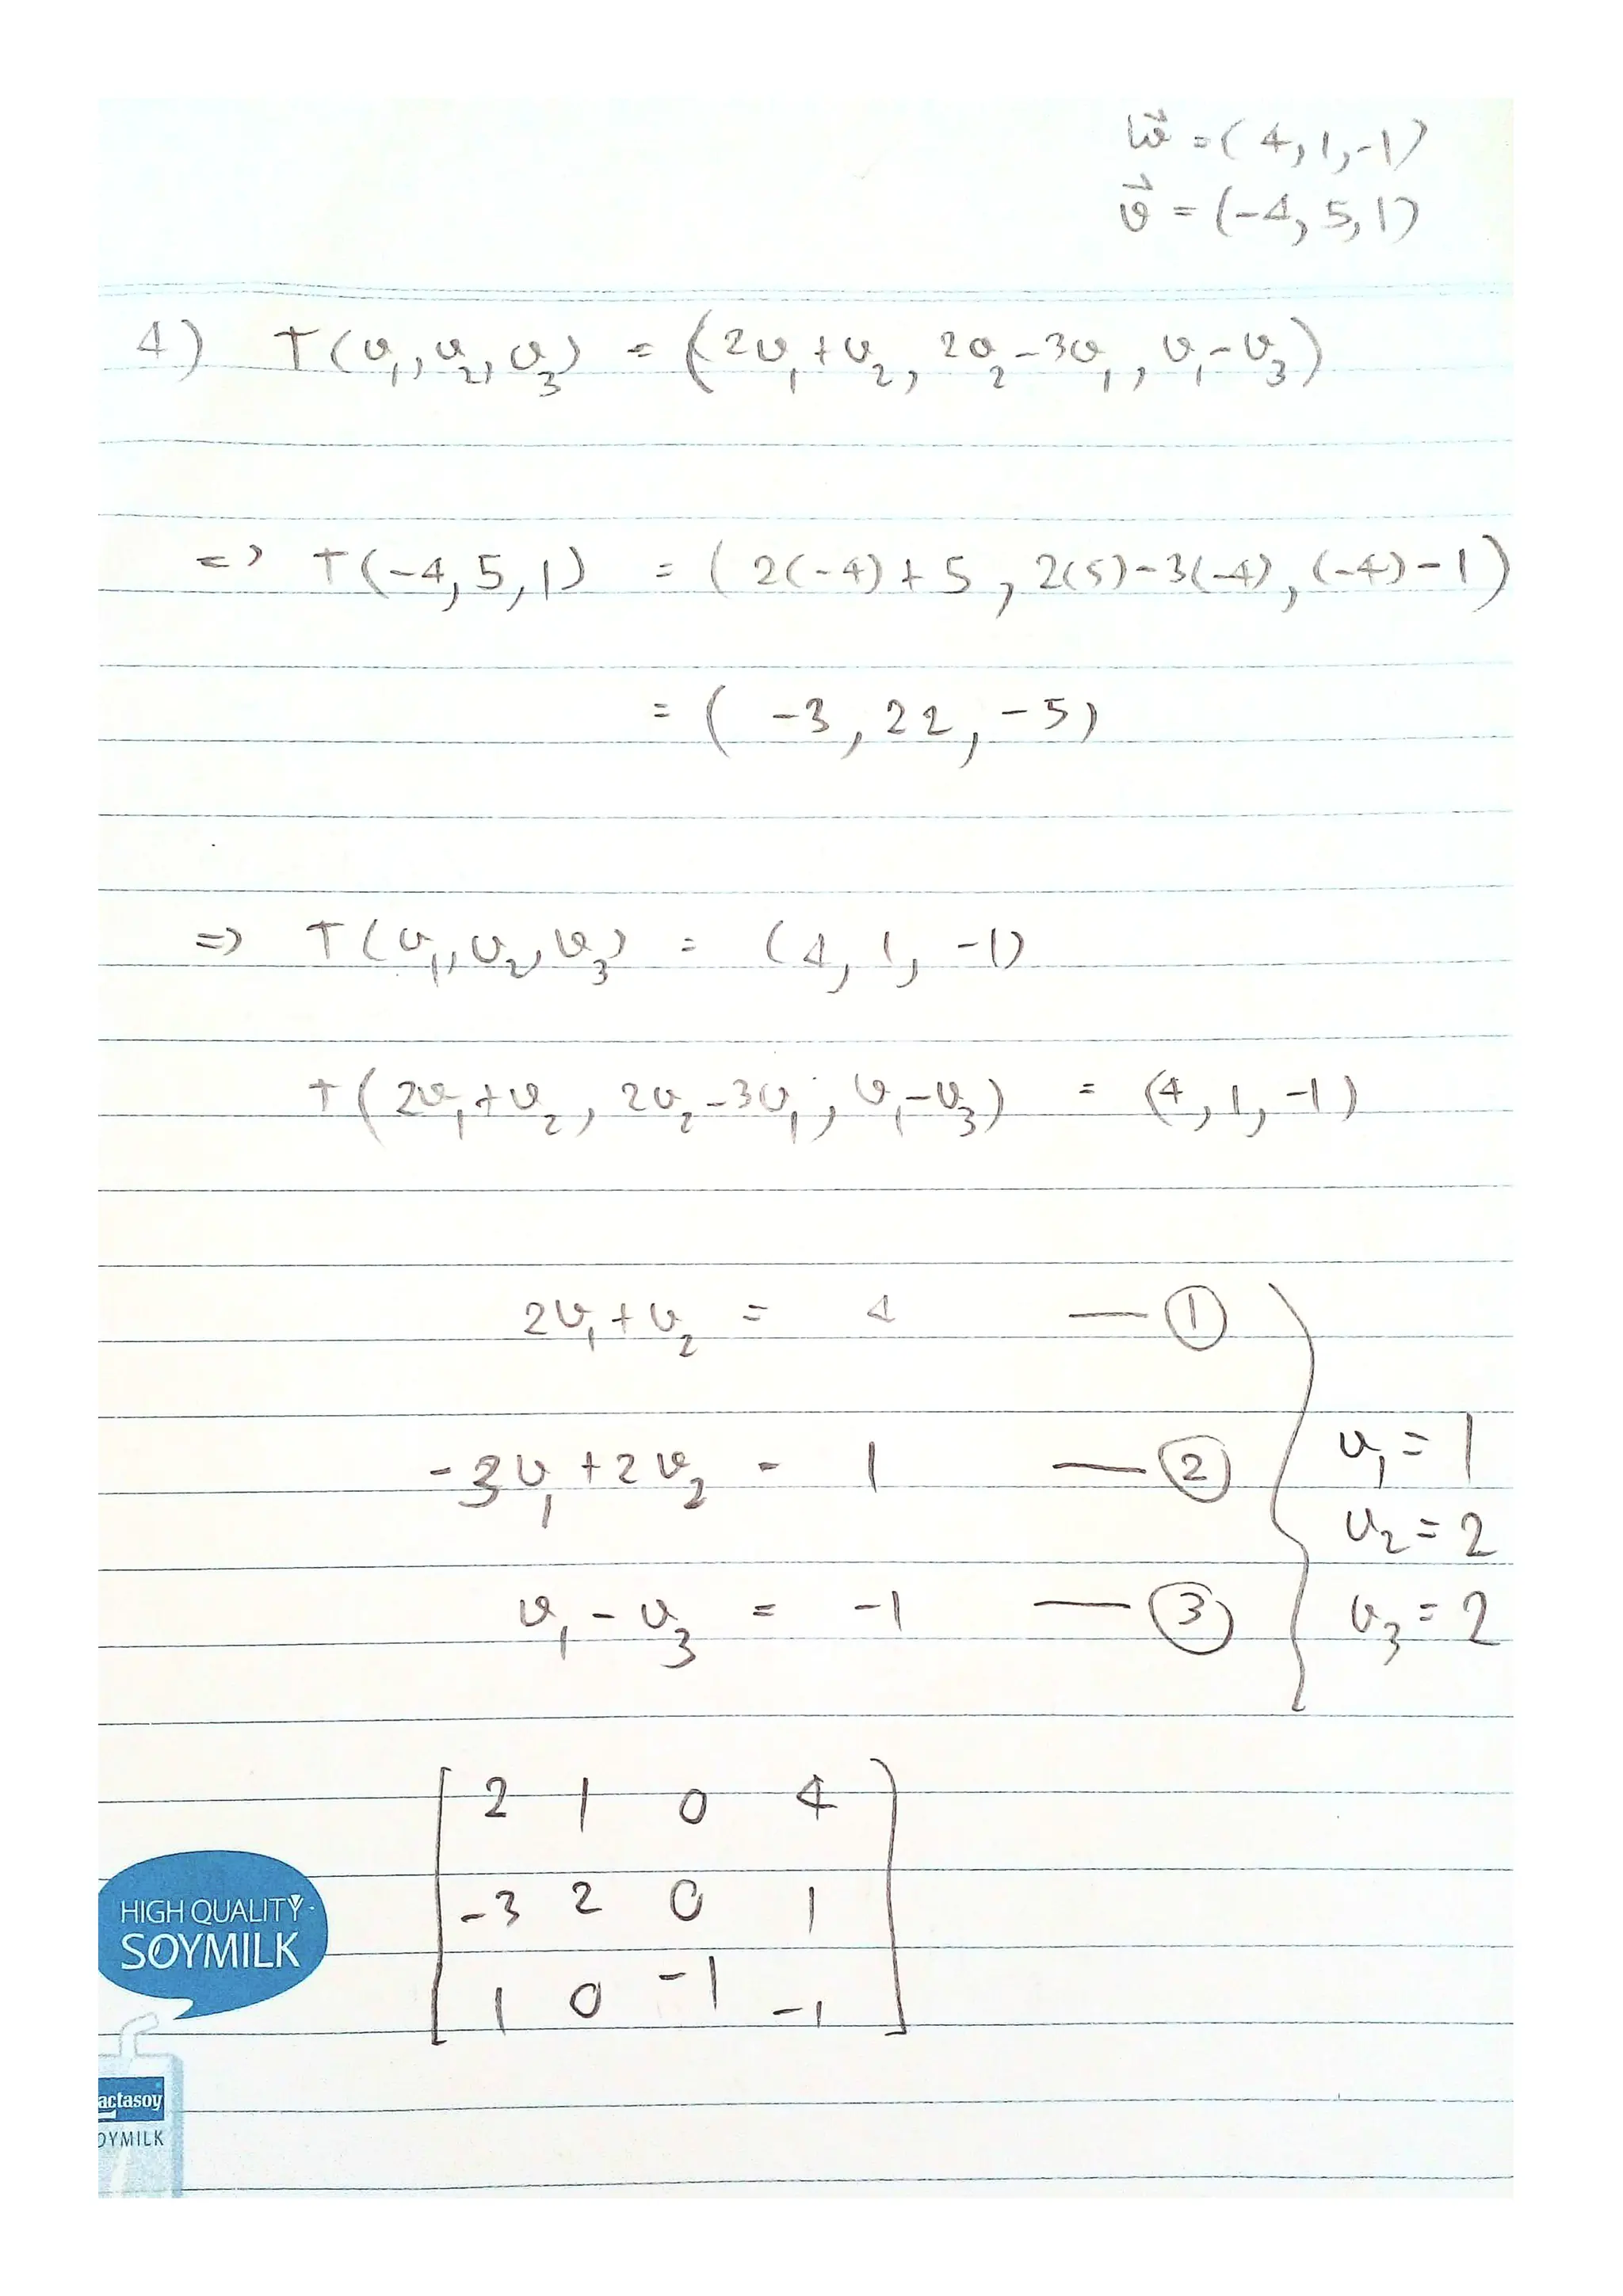 w⃗ = (4, 1, -1)
v⃗ = (-4, 5, 1)
4) T(v₁, v₂, v₃) = (2v₁+v₂, 2v₂-3v₁, v₁-v₃)
=> T(-4, 5, 1) = (2(-4)+5, 2(5)-3(-4), (-4)-1)
= (-3, 22, -5)
=> T(v₁, v₂, v₃) = (4, 1, -1)
T(2v₁+v₂, 2v₂-3v₁, v₁-v₃) = (4, 1, -1)
2v₁+v₂ = 4 — ①
-3v₁+2v₂ = 1 — ②
v₁-v₃ = -1 — ③
v₁ = 1
v₂ = 2
v₃ = 2
2 1 0 4
-3 2 0 1
1 0 -1 -1
HIGH QUALITY
SOYMILK
actasoy
OYMILK